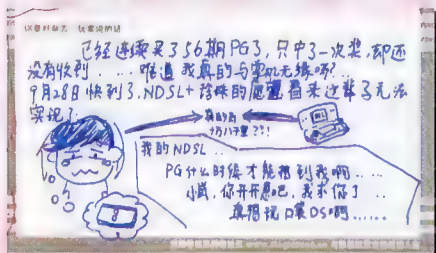 已经连续买了56期PG了,只中了一次奖,却还
没有收到....难道我真的与掌机无缘吗?..
9月28日快到了,NDSL+珍珠的愿望看来这辈子无法
实现了
真的有
十万八千里??!
我的NDSL..
PG什么时候才能想到我啊....
小岗,你开开恩吧,我求你了..
真想玩口袋DS啊......